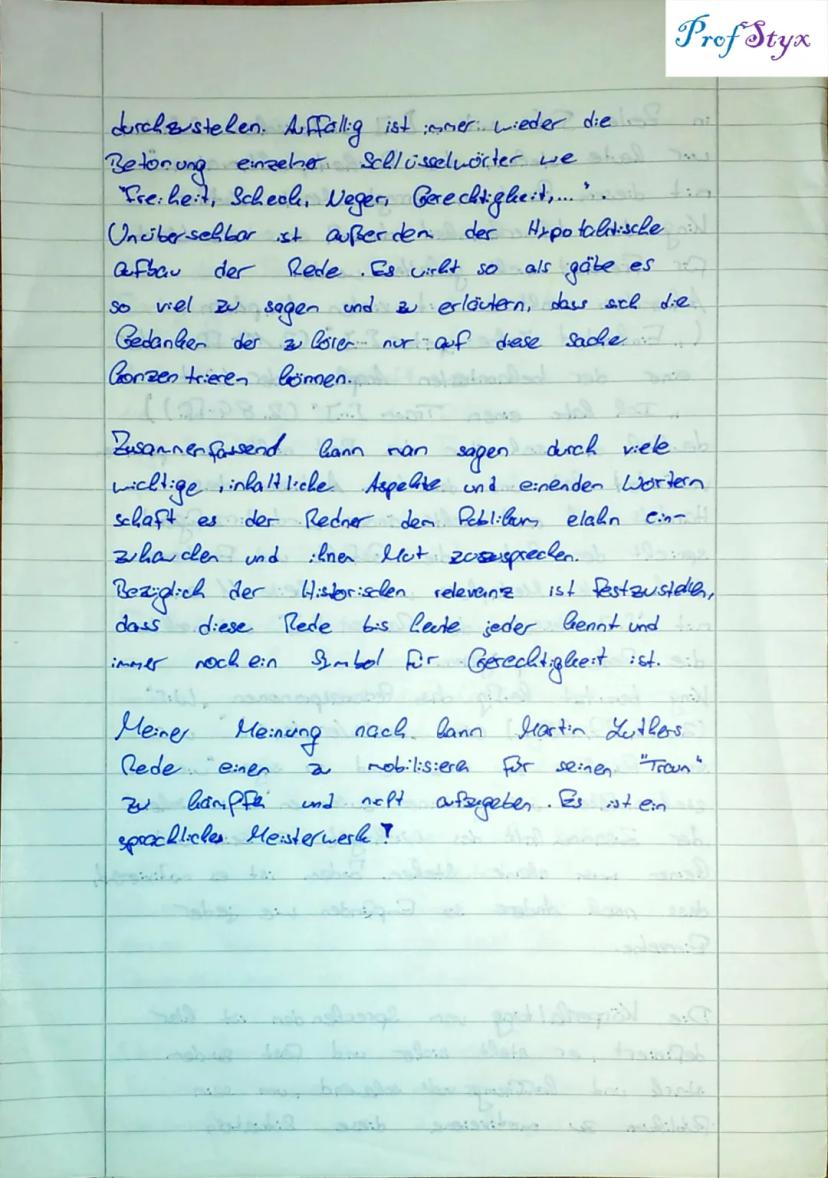 Prof Styx
durchzustehen. Auffällig ist immer wieder die
Betonung einzelner Schlüsselwörter we
"Freiheit, Scheck, Neger, Gerechtigkeit,...".
Unübersehbar ist außerdem der Hypotaktische
aufbau der Rede. Es wirkt so als gäbe es
so viel zu sagen und zu erläutern, dass sich die
Gedanken der zuhörer nur auf diese sache
konzentrieren können.
Zusammenfassend kann man sagen durch viele
wichtige, inhaltliche Aspekte und einenden Wörtern
schaft es der Redner dem Publikum elahn ein-
zuhauchen und ihnen Mut zuzusprechen.
Bezüglich der Historischen relevanz ist festzustellen,
dass diese Rede bis heute jeder kennt und
immer noch ein Symbol für Gerechtigkeit ist.
Meiner Meinung nach kann Martin Luthers
Rede einen zu mobilisieren für seinen "Traum"
zu kämpfen und nicht aufzugeben. Es ist ein
sprachliches Meisterwerk!